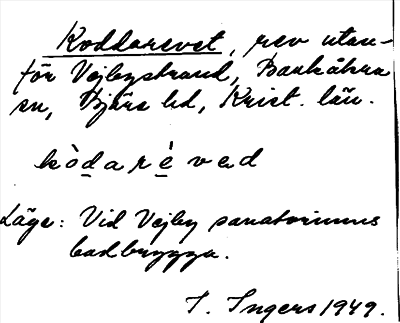 Koddarevet, rev utan-
för Vejbystrand, Barkåkra
sn, Bjäre hd, Krist. län.
kòdarèved
Läge: Vid Vejby sanatoriums
badbrygga.
I. Ingers 1949.